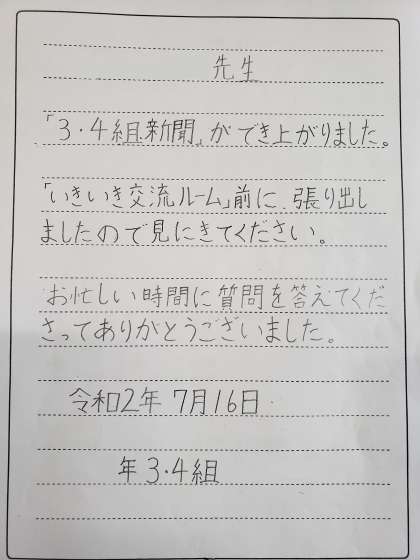 先生
「3・4組新聞」ができ上がりました。
「いきいき交流ルーム」前に、張り出し
ましたので見にきてください。
お忙しい時間に質問を答えてくだ
さってありがとうございました。
令和2年 7月16日
年 3・4組